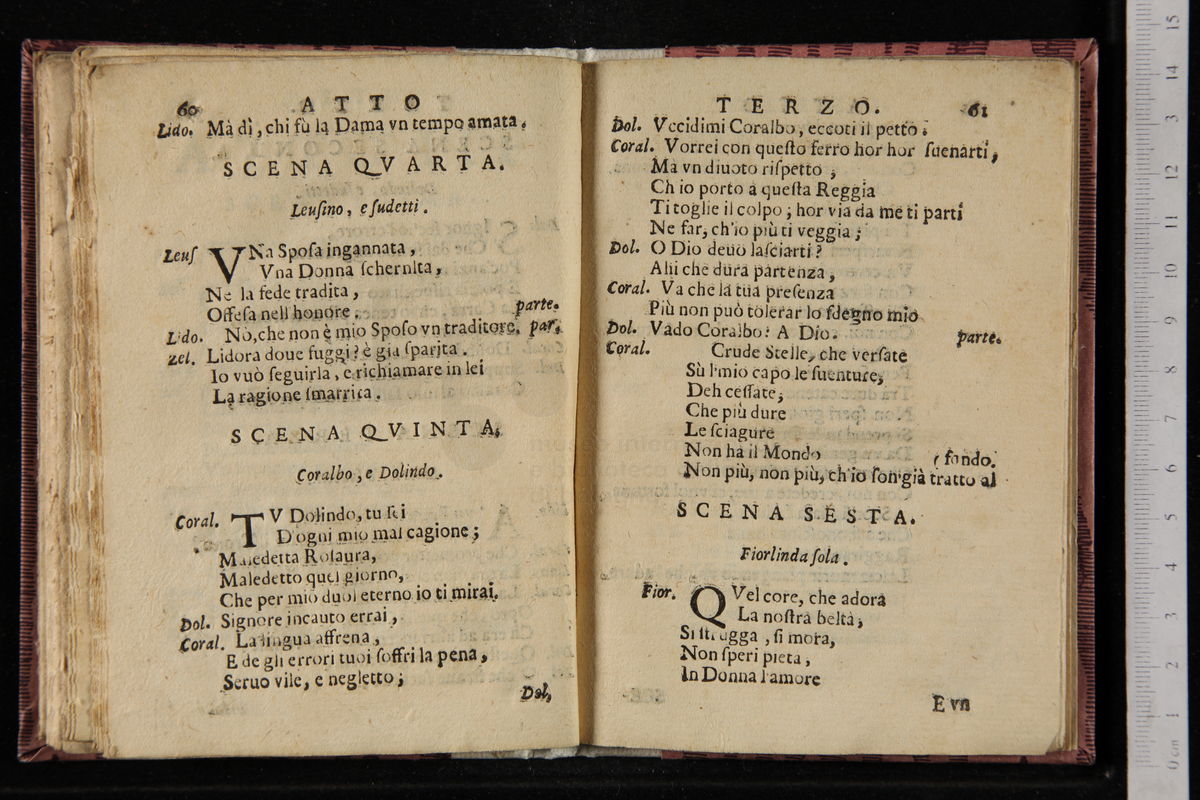 60 ATTO
Lido. Mà dì, chi fù la Dama vn tempo amata.
SCENA QVARTA.
Leusino, e sudetti.
Leus VNa Sposa ingannata,
Vna Donna schernita,
Ne la fede tradita,
Offesa nell honore. parte.
Lido. Nò, che non è mio Sposo vn traditore. par.
Zel. Lidora doue fuggi? è gia sparita.
Io vuò seguirla, e richiamare in lei
La ragione smarrita.
SCENA QVINTA.
Coralbo, e Dolindo.
Coral. TV Dolindo, tu sei
D'ogni mio mal cagione;
Maledetta Rosaura,
Maledetto quel giorno,
Che per mio duol eterno io ti mirai.
Dol. Signore incauto errai,
Coral. La lingua affrena,
E de gli errori tuoi soffri la pena,
Seruo vile, e negletto;
Dol,
TERZO. 61
Dol. Vccidimi Coralbo, eccoti il petto.
Coral. Vorrei con questo ferro hor hor suenarti,
Ma vn diuoto rispetto,
Ch io porto a questa Reggia
Ti toglie il colpo; hor via da me ti parti
Ne far, ch'io più ti veggia;
Dol. O Dio deuo lasciarti?
Ahi che dura partenza,
Coral. Va che la tua presenza
Più non può tolerar lo sdegno mio
Dol. Vado Coralbo: A Dio. parte.
Coral. Crude Stelle, che versate
Sù l'mio capo le suenture,
Deh cessate,
Che più dure
Le sciagure
Non ha il Mondo
Non più, non più, ch'io son già tratto al (fondo.
SCENA SESTA.
Fiorlinda sola.
Fior. QVel core, che adora
La nostra beltà,
Si strugga, si mora,
Non speri pieta,
In Donna l'amore
E vn